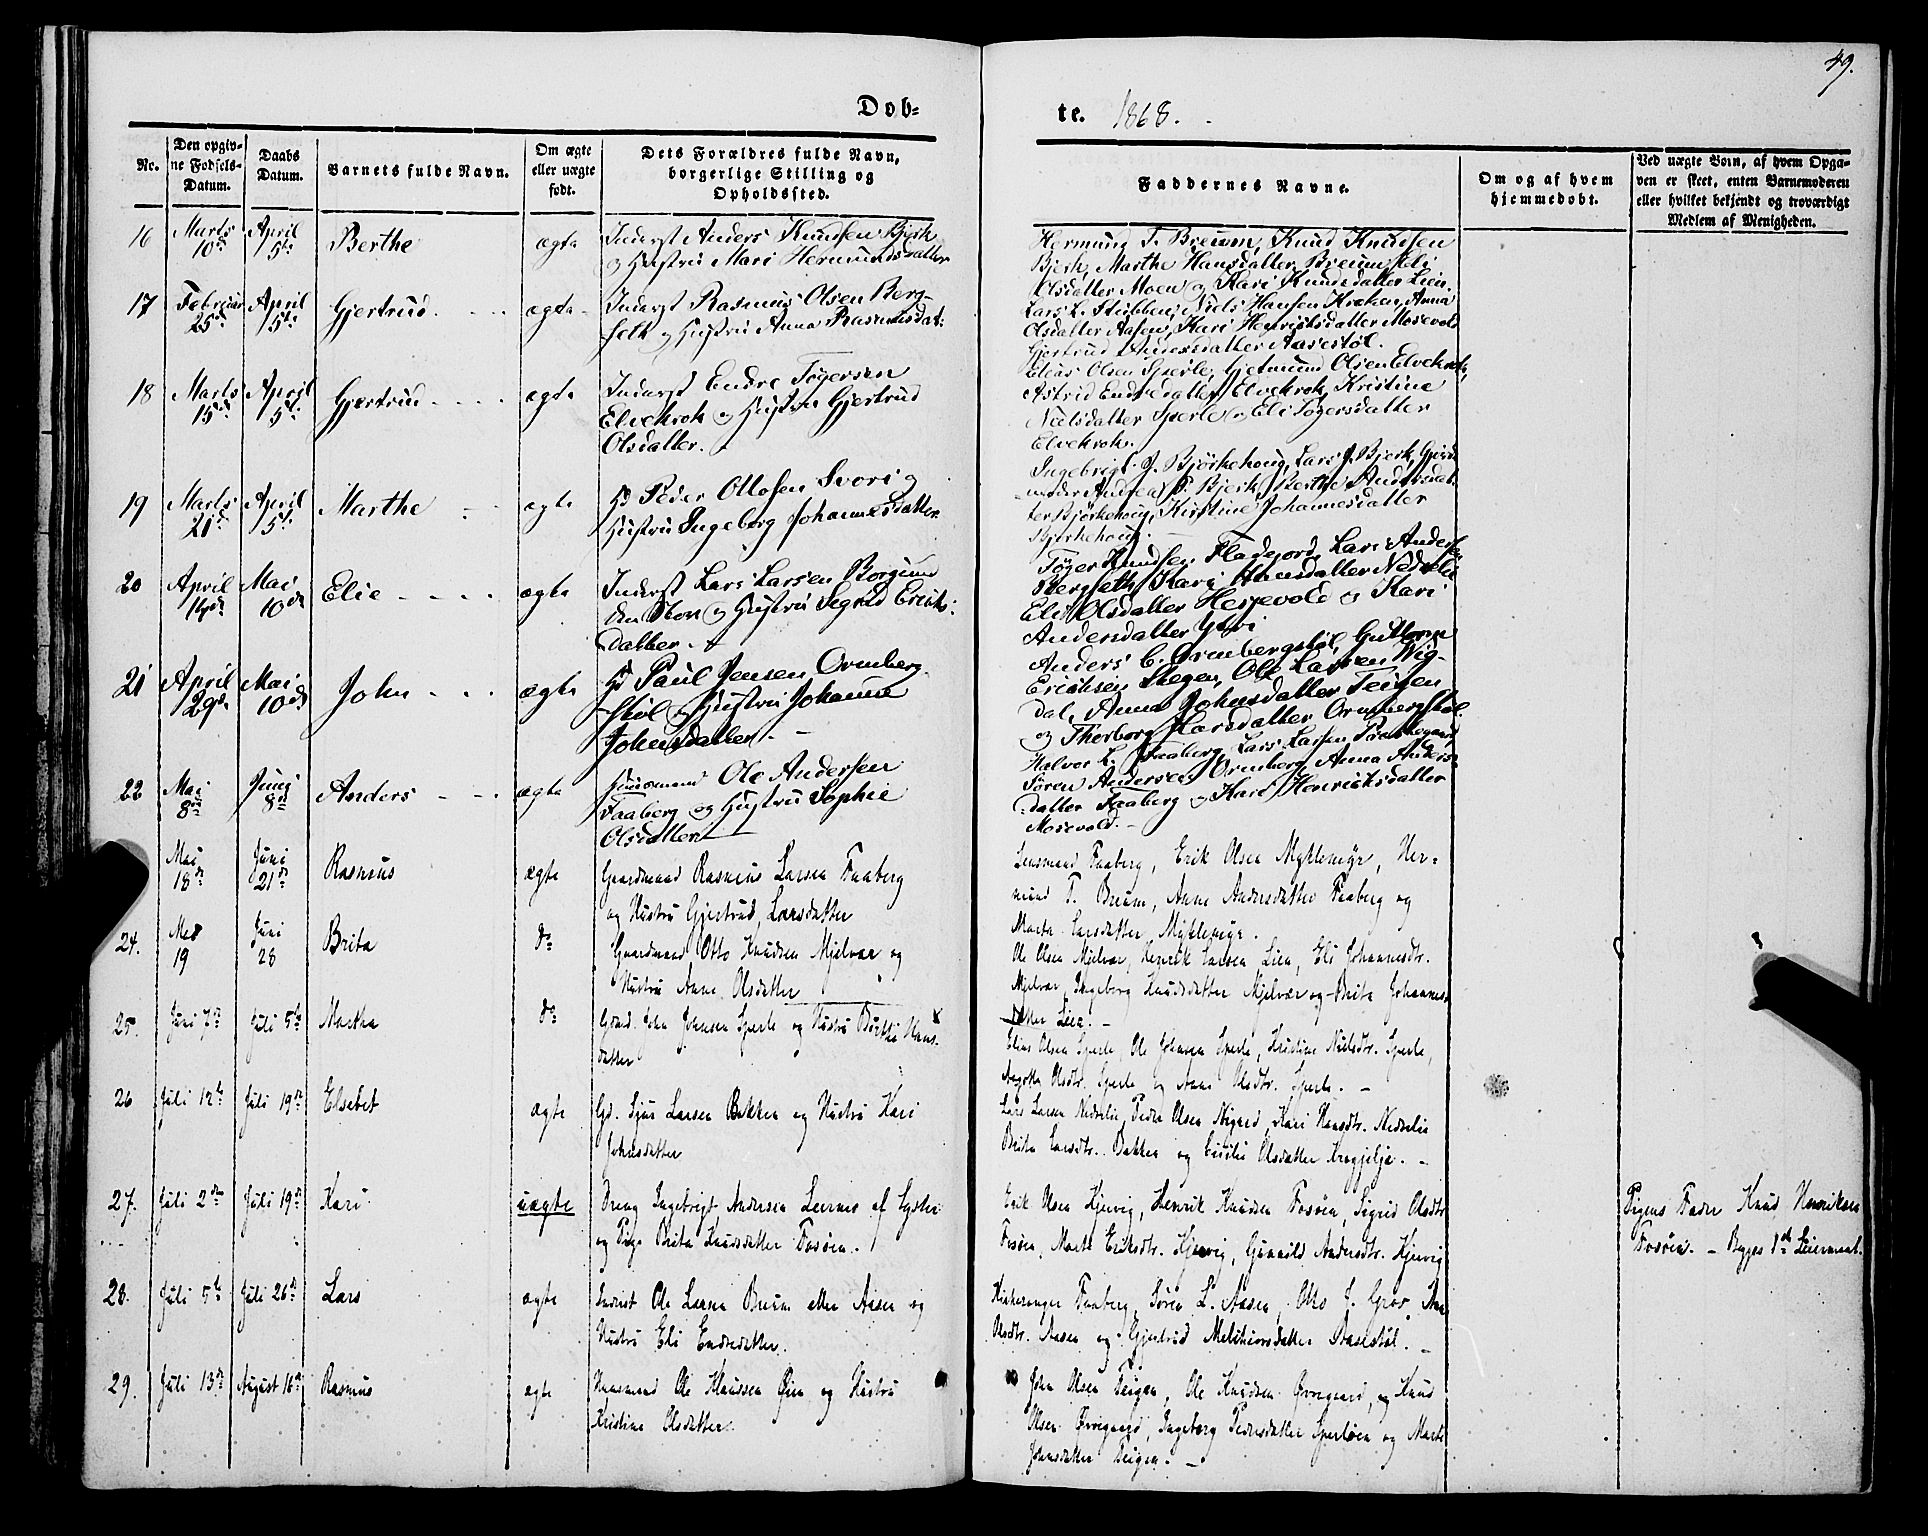 49.
Døb-
te. 1868.
No.
Den opgiv-
ne Fødsels-
Datum.
Daabs
Datum.
Barnets fulde Navn.
Om ægte
eller uægte
født.
Dets Forældres fulde Navn,
borgerlige Stilling og
Opholdssted.
Faddernes Navne.
Om og af hvem
hjemmedøbt.
Ved uægte Børn, af hvem Opga-
ven er skeet, enten Barnemoderen
eller hvilket bekjendt og troværdigt
Medlem af Menigheden.
16 Marts 10de April 5te Berthe ægte
Inderst Anders Knudsen Bjerk
og Hustru Mari Hermundsdatter
Hermund T. Breum, Knud Knudsen
Bjerk, Marthe Hansdatter Breum, Eli
Olsdatter Moen og Kari Knudsdatter Lien.
17 Februar 25de April 5te Gjertrud ægte
Inderst Rasmus Olsen Berg-
seth og Hustru Anna Rasmusdat:
Lars L. Stubben, Niels Hansen Kroken, Anna
Olsdatter Aasen, Kari Henriksdatter Mosevold
Gjertrud Andersdatter Aasestøl.
18 Marts 15de April 5te Gjertrud ægte
Inderst Endre Tøgersen
Elvekrok og Hustru Gjertrud
Olsdatter.
Elias Olsen Sperle, Gjetmund Olsen Elvekrok,
Astrid Endredatter Elvekrok, Kristine
Nielsdatter Sperle og Eli Tøgersdatter
Elvekrok.
19 Marts 21de April 5te Marthe ægte
Gd Peder Ottosen Svori og
Hustru Ingeborg Johannesdatter
Ingebrigt J. Bjørkehoug, Lars J. Bjerk,
Andrea P. Bjerk, Berthe Andersdat
ter Bjørkehoug, Kirstine Johannesdatter
Bjørkehoug.
20 April 14de Mai 10de Elie ægte
Inderst Lars Larsen Borgund
og Hustru Segrid Eriks:
datter.
Tøger Knudsen Fladejord, Lars Andersen
Bergseth, Kari Hansdatter Nedrelie
Eli Olsdatter Hesjevold og Kari
Andersdatter
21 April 29de Mai 10de John ægte
Gd Paul Jensen Ormberg-
støl og Hustru Johanne
Johnsdatter.
Anders C. Ormbergstøl, Guttorm
Erichsen Skegen, Ole Larsen Vig-
dal, Anna Johnsdatter Teigen
og Thorborg Larsdatter Ormbergstøl.
22 Mai 8de Juni 8de Anders ægte
Huusmand Ole Andersen
Faaberg og Hustru Sophie
Olsdatter
Halvor L. Faaberg, Lars Larsen
Søren Andersen Ormberg, Anna Anders-
datter Faaberg og Kari Henriksdatter
Mosevold.
Mai 18de Juni 21de Rasmus ægte
Gaardmand Rasmus Larsen Faaberg
og Hustru Gjertrud Larsdatter
Lensmand Faaberg, Erik Olsen Myklemyr, Her-
mund T. Breum, Anne Andersdatter Faaberg og
Marta Larsdatter Myklemyr.
24. Mai 19 Juni 28 Brita do
Gaardmand Otto Knudsen Mjelvær og
Hustru Anne Olsdatter
Ole Olsen Mjelvær, Henrik Larsen Lien, Eli Johannesdtr.
Mjelvær, Ingeborg Knudsdatter Mjelvær og Brita Johannes-
datter Lien. –
25. Juni 7de Juli 5te Martha do
Grdmd. John Johnsen Sperle og Hustru Berthe Hans-
datter
Elias Olsen Sperle, Ole Johnsen Sperle, Kristine Nielsdtr. Sperle,
Olsdtr. Sperle og Anne Olsdtr. Sperle. –
26 Juli 12te Juli 19de Elsebet ægte
Gd. Sjur Larsen Bakken og Hustru Kari
Johnsdatter
Lars Larsen Nedrelie, Peder Olsen Nigard, Kari Hansdtr. Nedrelie
Brita Larsdtr. Bakken og Cecilie Olsdatter Krogjelje. –
27. Juli 2den Juli 19de Kari uægte
Dreng Ingebrigt Andersen Leirmo af Lyster
og Pige Brita Knudsdatter Fosøen.
Erik Olsen Kjervig, Henrik Knudsen Fosøen, Sigrid Olsdtr.
Fosøen, Marte Eriksdtr. Kjervig, Gunnild Andersdtr. Kjervig
Pigens Fader Knud Henriksen
Fosøen. – Begges 1ste Leiermaal.
28. Juli 5te Juli 26de Lars ægte
Inderst Ole Larsen Breum eller Aasen og
Hustru Eli Endredatter.
Kirkesanger Faaberg, Søren L. Aasen, Otto J. Grov,
Olsdtr. Aasen og Gjertrud Melchiorsdatter Aasestøl. –
29. Juli 13de August 16de Rasmus ægte
Huusmand Ole Knudsen Øien og Hustru
Kristine Olsdatter.
John Olsen Teigen, Ole Knudsen Øvregaard, og Knud
Olsen Øvregaard, Ingeborg Pedersdatter Sperløen og Marte
Johnsdatter Teigen. –